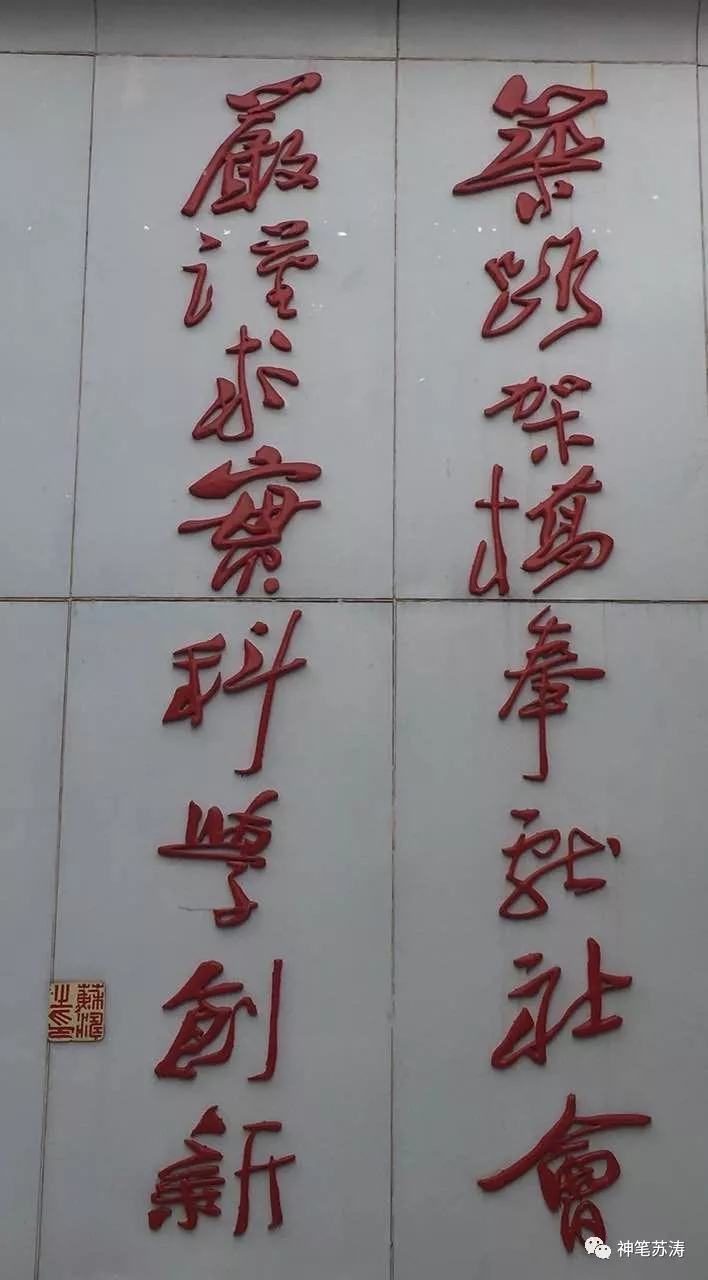 築路架橋奉献社會
嚴謹求實科學創新
蘇濤
神笔苏涛